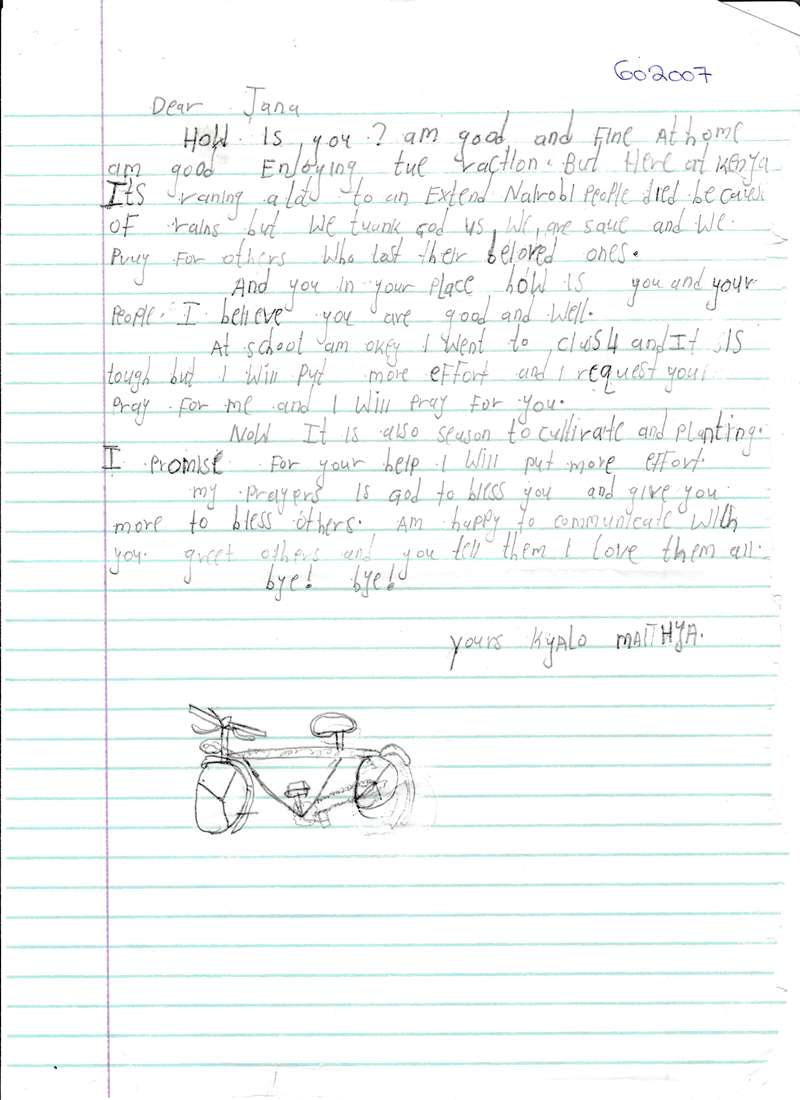 602007
Dear Jana
How is you? am good and Fine At home
am good Enjoying tue vaction. But Here at Kenya
Its raning alot to an Extend Nairobi People died because
OF rains but We tuank God us, We are save and We
Pray For others Who last their beloved ones.
And you in your place how is you and your
People. I believe you are good and Well.
At school am okey I Went to class 4 and It is
tough but I Will Put more effort and I request you
Pray For me and I Will Pray For you.
Now It is also season to cultirate and Planting.
I Promise For your help I Will put more effort.
my Prayers is God to bless you and give you
more to bless others. Am happy to communicate With
you. greet others and you tell them I love them all.
bye! bye!
yours KYALO MAITHYA.